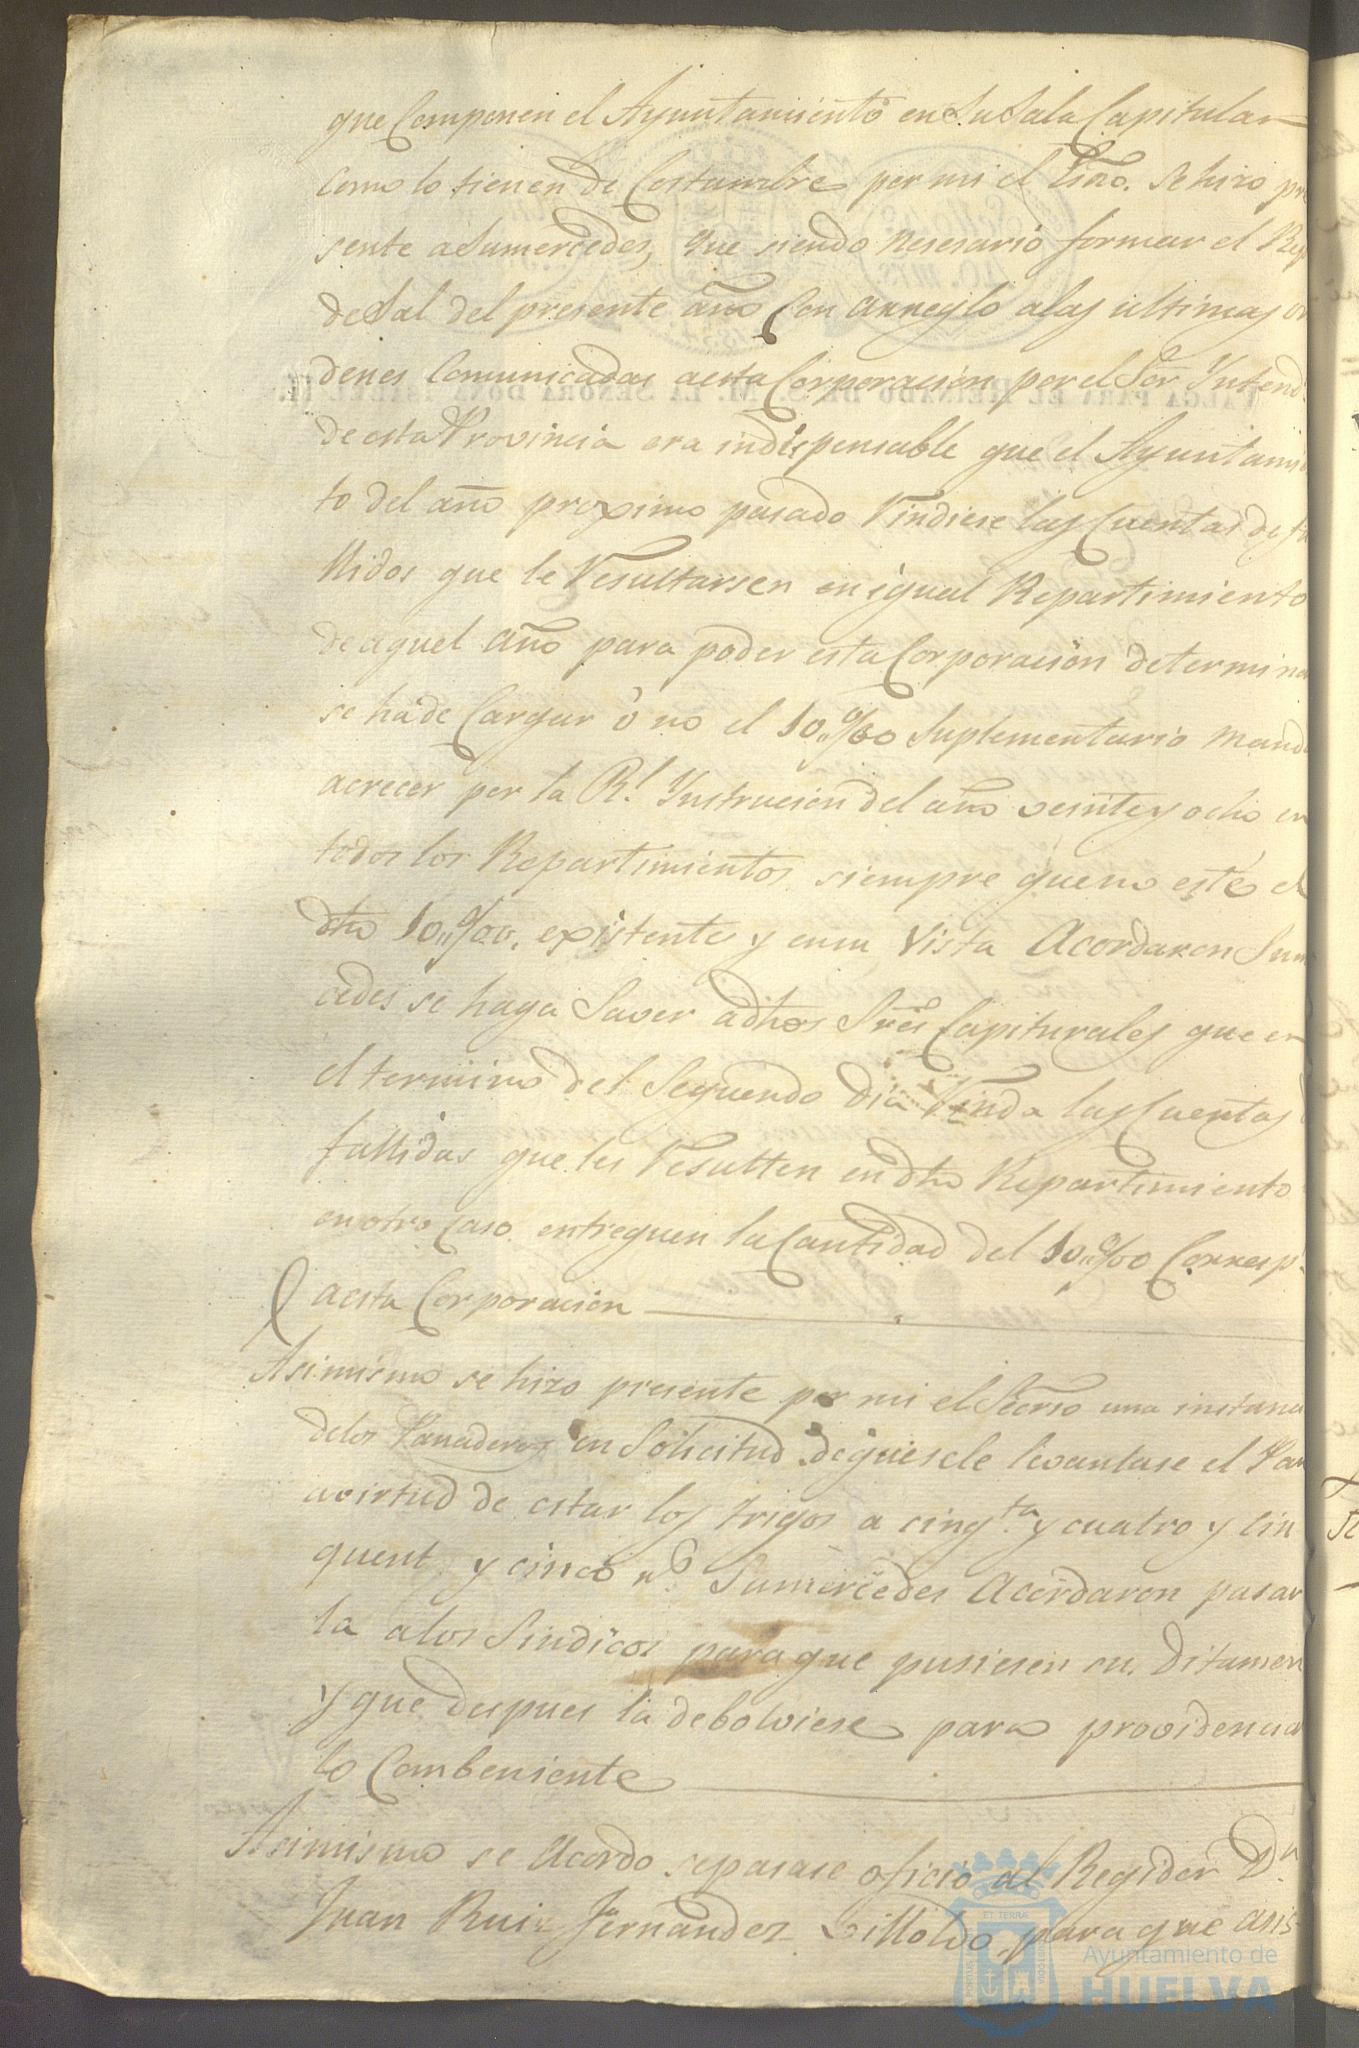 que Componen el Ayuntamiento en Su Sala Capitular
como lo tienen de Costumbre por mi el Esno. Se hizo pre
sente a Sumercedes, que siendo nesesario formar el Rep
de Sal del presente año Con arreglo alas ultimas or
denes Comunicadas aesta Corporacion por el Sor. Yntend.
de esta Provincia era indispensable que el Ayuntamie
to del año proximo pasado Rindiese las Cuentas de fa
llidos que le Resultarsen en igual Repartimiento
de aquel año para poder esta Corporacion determina
se ha de Cargar ó no el 10,,%00 Suplementario mand
acrecer por la Rl. Ynstrucion del año veinte y ocho en
todos los Repartimientos siempre queno esté el
dho 10,,%00. existente y ensu Vista Acordaron Sum
cedes se haga Saver adhos Sres Capiturales que en
el termino del Seguendo Dia Rinda las Cuentas
fallidas que les Resulten en dho Repartimiento
en otro Caso entreguen la Cantidad del 10,,%00 Corresp.
aesta Corporacion
Asimismo se hizo presente por mi el Secrio una instanci
delos Panaderos en Solicitud de quesele levantase el Pan
avirtud de estar los trigos a cinqta. y cuatro y cin
quent. y cinco Sumercedes Acordaron pasar
la alos Sindicos para que pusiesen su Ditamen
y que despues la debolviese para providencia
lo Combeniente
Asimismo se Acordo sepasase oficio al Regidor Dn.
Juan Ruiz Fernandez para que asis
VALGA PARA EL REINADO DE S. M. LA SEÑORA DOÑA ISABEL II.
Ayuntamiento de
HUELVA